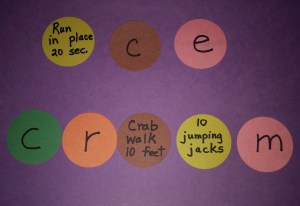 Run in place 20 sec. c e
c r Crab walk 10 feet 10 jumping jacks m